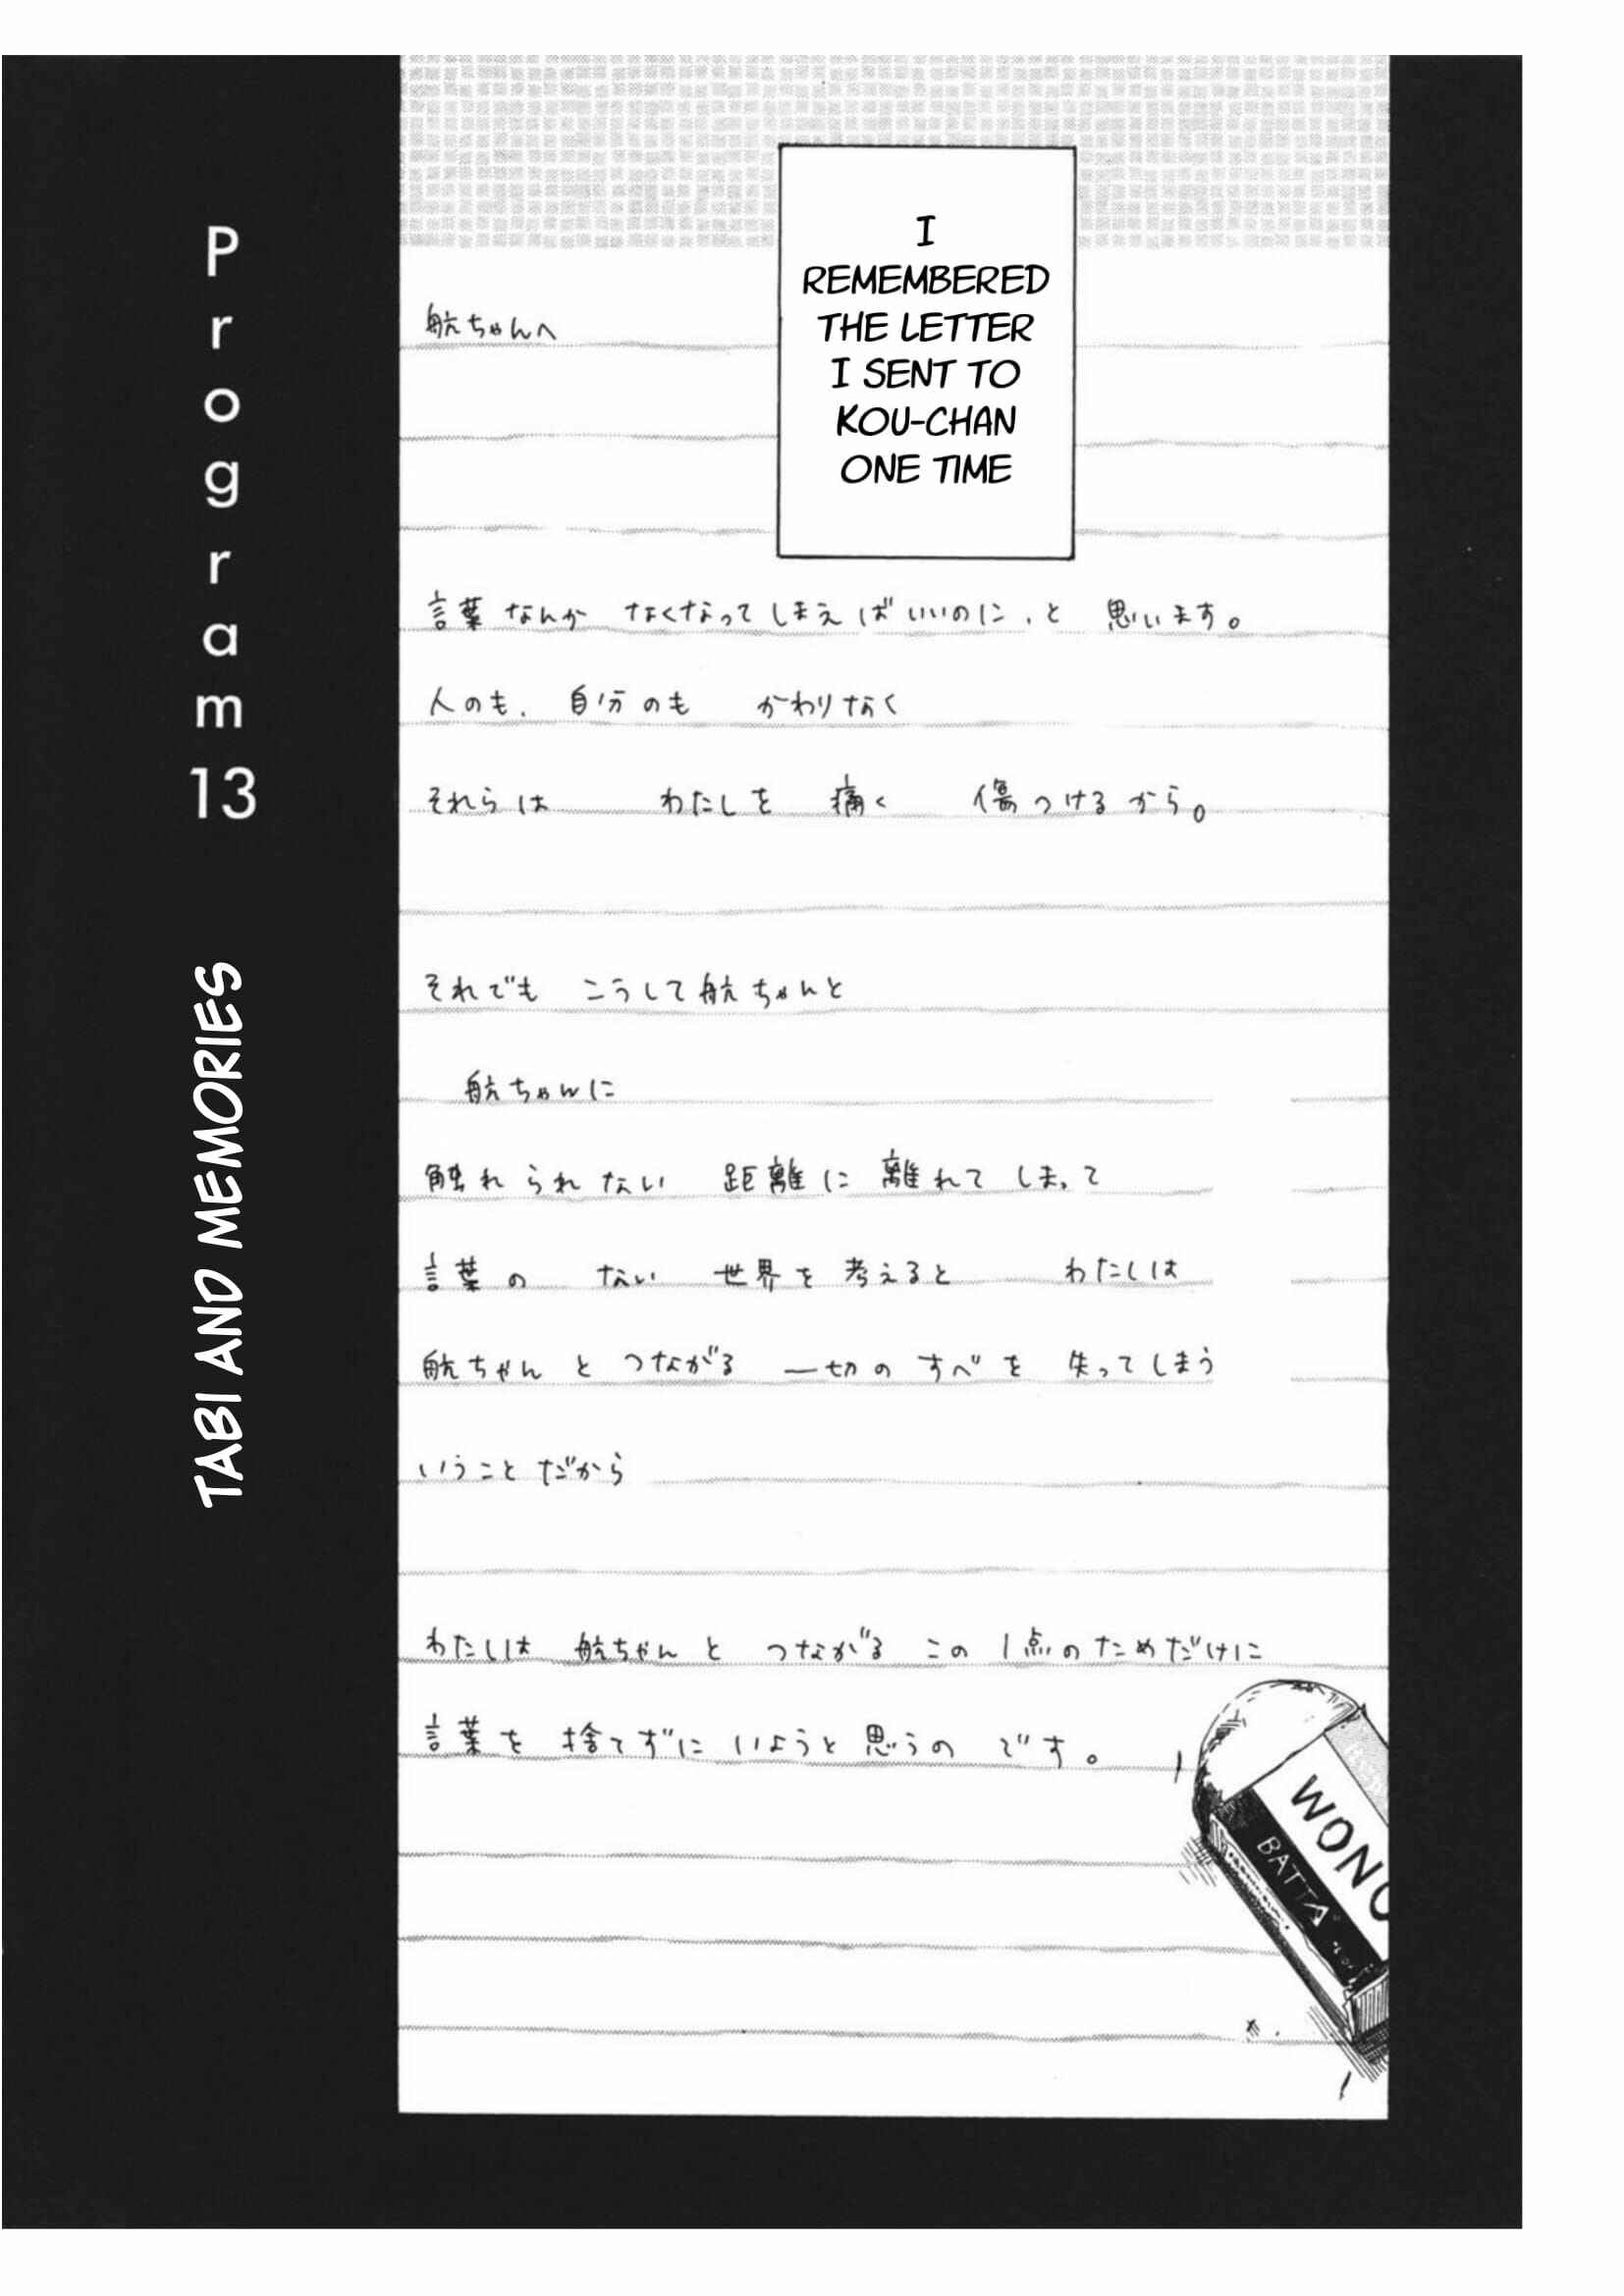 Program 13
TABI AND MEMORIES
I
REMEMBERED
THE LETTER
I SENT TO
KOU-CHAN
ONE TIME
航ちゃんへ
言葉なんか なくなってしまえばいいのに、と 思います。
人のも、自分のも かわりなく
それらは わたしを 痛く 傷つけるから。
それでも こうして航ちゃんと
航ちゃんに
触れられない 距離に 離れて しまって
言葉の ない 世界を 考えると わたしは
航ちゃん と つながる 一切の すべを 失ってしまう
いうことだから
わたしは 航ちゃん と つながる この 1点のためだけに
言葉を 捨てずに いようと 思うの です。
WONO
BATTA